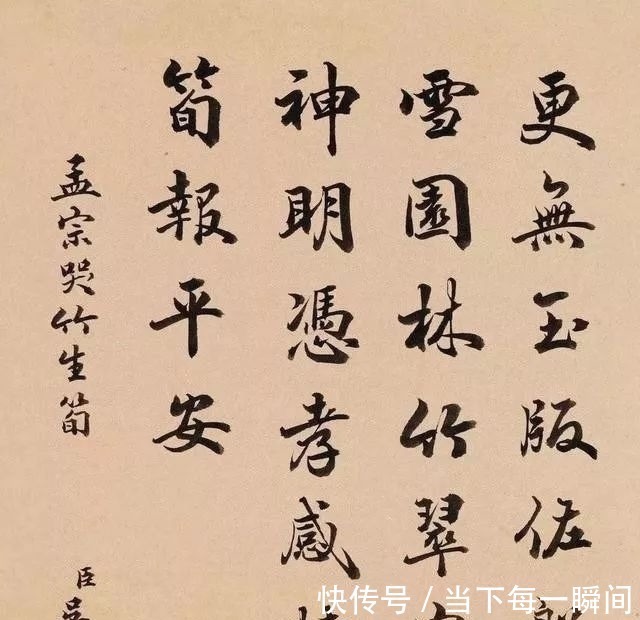 更無玉版佐
雪園林竹翠
神明憑孝感
筍報平安
孟宗哭竹生筍
臣吳
快传号/当下每一瞬间